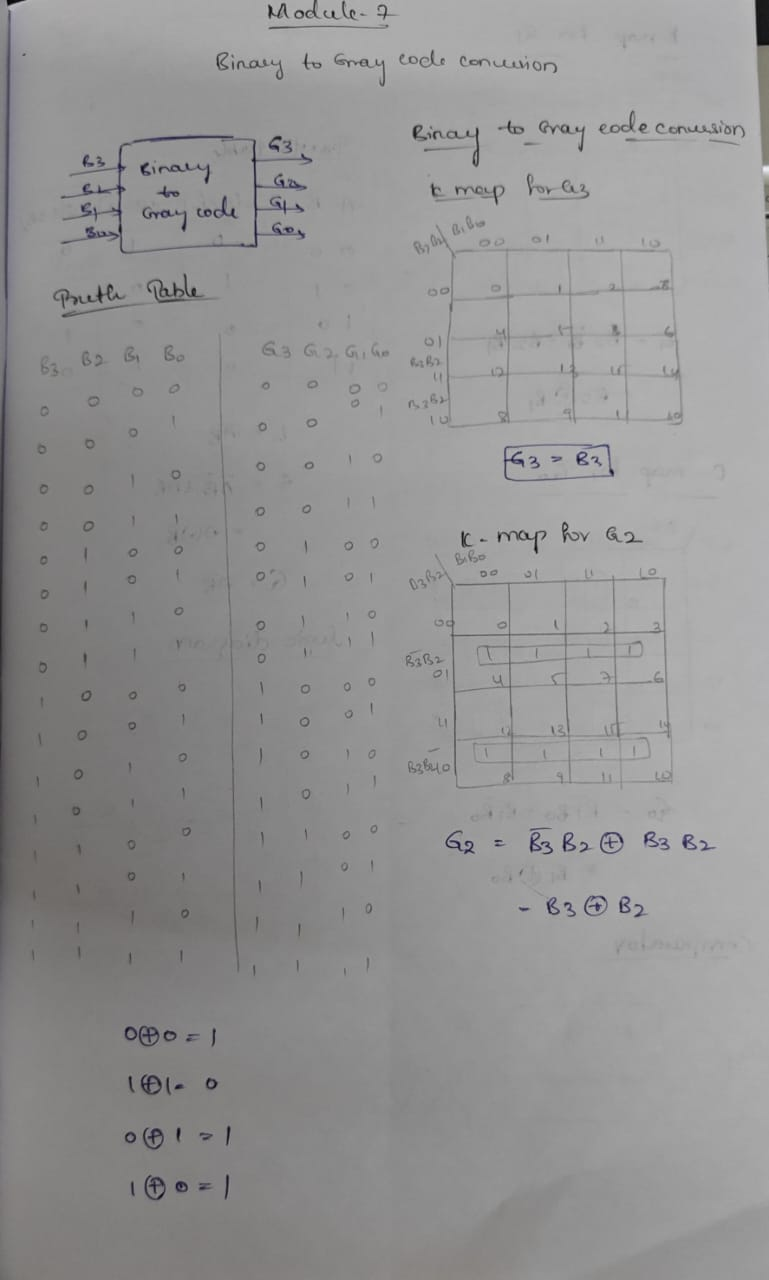 Module-7
Binary to Gray code conversion
B3
B2
B1
B0
Binary
to
Gray code
G3
G2
G1
G0
Truth Table
B3 B2 B1 B0 G3 G2 G1 G0
0 0 0 0 0 0 0 0
0 0 0 1 0 0 0 1
0 0 1 0 0 0 1 0
0 0 1 1 0 0 1 1
0 1 0 0 0 1 0 0
0 1 0 1 0 1 0 1
0 1 1 0 0 1 1 0
0 1 1 1 0 1 1 1
1 0 0 0 1 0 0 0
1 0 0 1 1 0 0 1
1 0 1 0 1 0 1 0
1 0 1 1 1 0 1 1
1 1 0 0 1 1 0 0
1 1 0 1 1 1 0 1
1 1 1 0 1 1 1 0
1 1 1 1 1 1 1 1
0⊕0=1
1⊕1=0
0⊕1=1
1⊕0=1
Binay to Gray code conversion
K map for G3
B3B2 B1B0
00 01 11 10
00 0 1 2 3
01 4 5 6
B3B2
11 12 13 15 14
B3B2
10 8 9 1 10
G3 = B3
K-map for G2
B1B0
B3B2 00 01 11 10
00 0 1 2 3
B̅3B2 1 1 1 1
01 4 5 7 6
11 12 13 15 14
1 1 1 1
10 8 9 11 10
G2 = B̅3 B2 ⊕ B3 B2
- B3 ⊕ B2